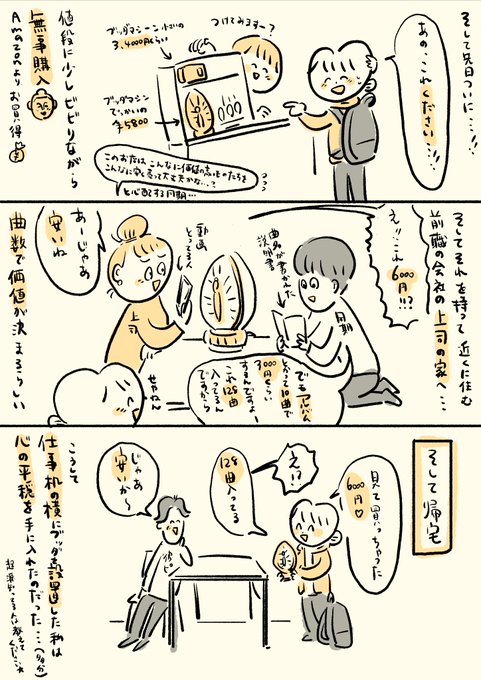 そして先日ついに…!!
あの、これ
ください…!!
つけてみるすー?
ブッダマシーン小さいの
3,400円くらい
ブッダマシン
でっかいの
¥5800
このお店は、こんなに価値のあるものたちを
こんなに安く売って大丈夫かな…?
と心配する同期…
値段に少しビビりながら
無事購入
Amazonより
お買得
そしてそれを持って近くに住む
前職の会社の上司の家へ…
えッ、これ
6000円!!?
曲名が書かれた
説明書
同期
動画
とってる人
上司
あーじゃあ
安いね
でもアルバム
だって10曲で
3000円くらい
するんですよー
これ128曲
入ってるん
ですから
せやねん
曲数で価値が決まるらしい
そして帰宅
見て買っちゃった
6000円♡
え!?
128曲入ってる
じゃあ
安いか〜
彼氏
こうして
仕事机の横にブッダ設置した私は
心の平穏を手に入れたのだった…(多分)